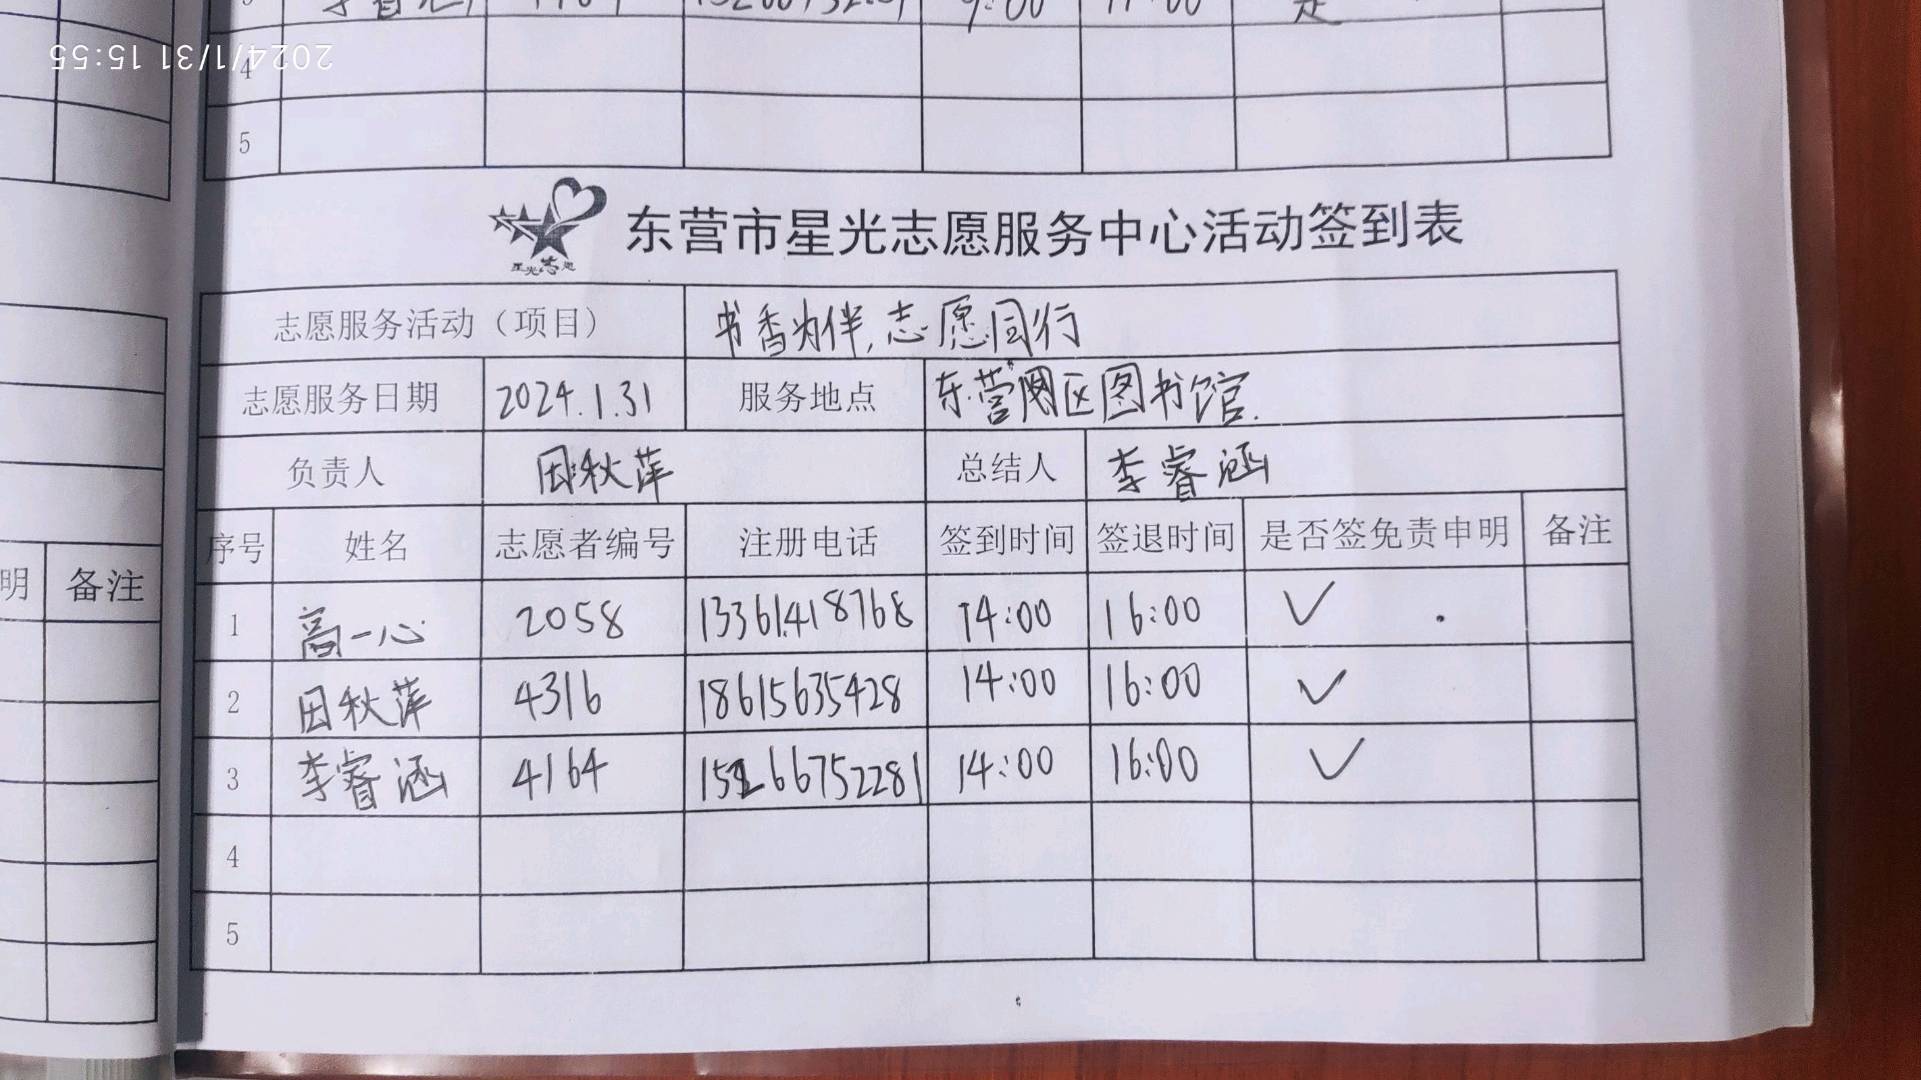 2024/1/31 15:55
4
5
东营市星光志愿服务中心活动签到表
志愿服务活动（项目） 书香为伴,志愿同行
志愿服务日期 2024.1.31 服务地点 东营区图书馆.
负责人 田秋萍 总结人 李睿涵
序号 姓名 志愿者编号 注册电话 签到时间 签退时间 是否签免责申明 备注
1 高一心 2058 13361418768 14:00 16:00 ✓
2 田秋萍 4316 18615635428 14:00 16:00 ✓
3 李睿涵 4164 15266752281 14:00 16:00 ✓
4
5
明 备注